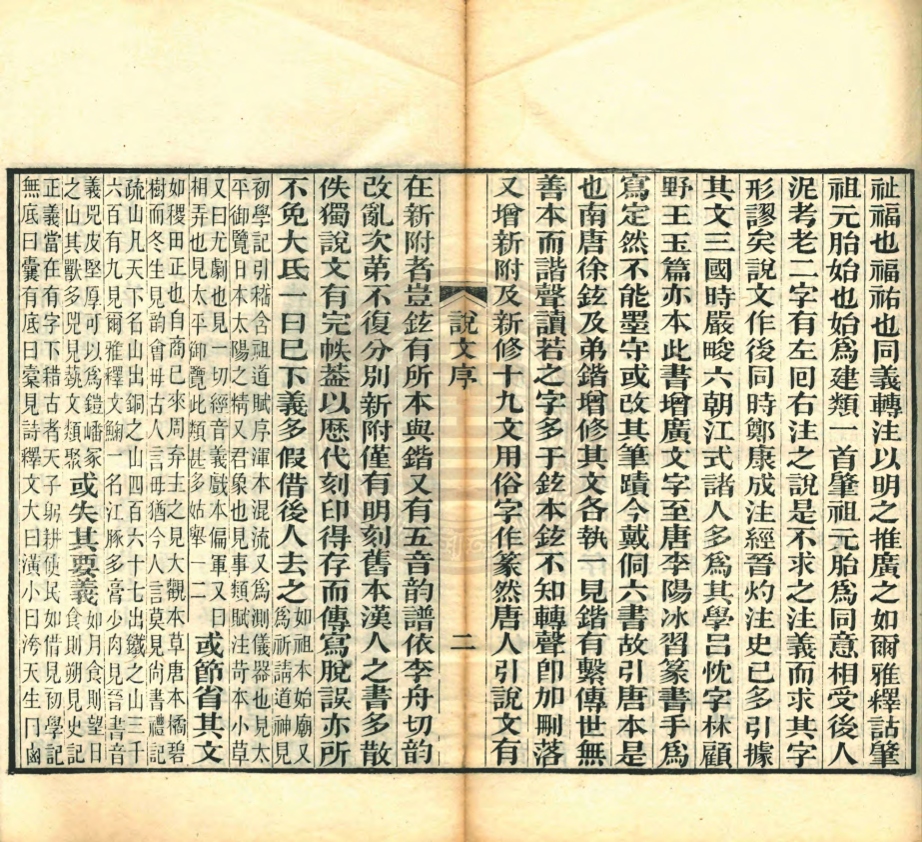 祉福也福祐也同義轉注以明之推廣之如爾雅釋詁肇
祖元胎始也始爲建類一首肇祖元胎爲同意相受後人
泥考老二字有左回右注之說是不求之注義而求其字
形謬矣說文作後同時鄭康成注經晉灼注史已多引據
其文三國時嚴畯六朝江式諸人多爲其學呂忱字林顧
野王玉篇亦本此書增廣文字至唐李陽冰習篆書手爲
寫定然不能墨守或改其筆蹟今戴侗六書故引唐本是
也南唐徐鉉及弟鍇增修其文各執一見鍇有繫傳世無
善本而諧聲讀若之字多于鉉本鉉不知轉聲卽加刪落
又增新附及新修十九文用俗字作篆然唐人引說文有
說文序
二
在新附者豈鉉有所本與鍇又有五音韵譜依李舟切韵
改亂次弟不復分別新附僅有明刻舊本漢人之書多散
佚獨說文有完帙葢以歷代刻印得存而傳寫脫誤亦所
不免大氐一曰已下義多假借後人去之如祖本始廟又爲祈請道神見
初學記引嵇含祖道賦序渾本混流又爲測儀器也見太
平御覽日本太陽之精又君象也見事類賦注苛本小草
又曰尤劇也見一切經音義戲本偏軍又曰
相弄也見太平御覽此類甚多姑舉一二或節省其文
如稷田正也自商已來周弃主之見大觀本草唐本橘碧
樹而冬生見韵會毋古人言毋猶今人言莫見尙書禮記
疏山凡天下名山出銅之山四百六十七出鐵之山三千
六百有九見爾雅釋文鯯一名江豚多膏少肉見晉書音
義兕皮堅厚可以爲鎧嶓冢
之山其獸多兕見蓺文類聚或失其要義如月食則望日食則朔見史記
正義當在有字下耤古者天子躬耕使民如借見初學記
無底曰囊有底曰橐見詩釋文大曰潢小曰洿天生冂鹵